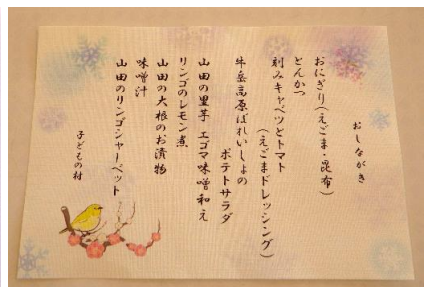 おしながき
おにぎり(えごま・昆布)
とんかつ
刻みキャベツとトマト
(えごまドレッシング)
牛岳高原ばれいしょの
ポテトサラダ
山田の里芋 エゴマ味噌和え
リンゴのレモン煮
山田の大根のお漬物
味噌汁
山田のリンゴシャーベット
子どもの村